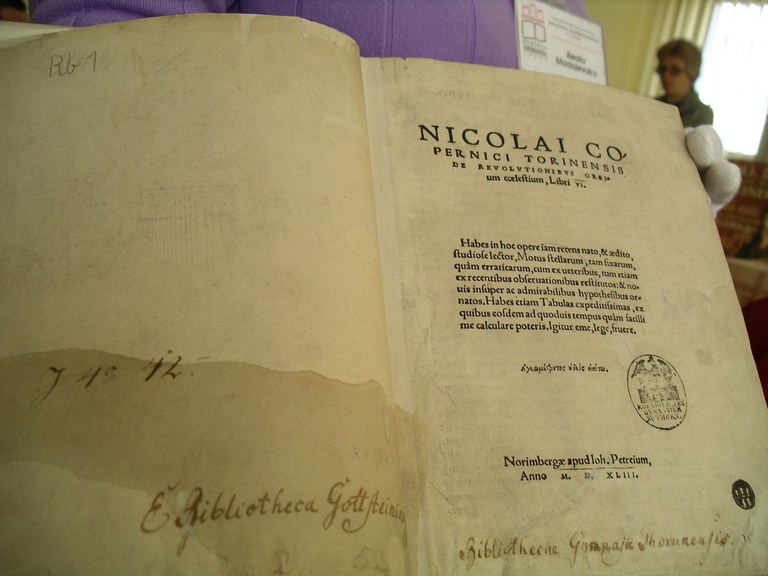 Rb 1
J 43 42.
E Bibliotheca Gottsteinin
52
NICOLAI CO-
PERNICI TORINENSIS
DE REVOLVTIONIBVS ORBI-
um cœlestium, Libri VI.
Habes in hoc opere iam recens nato, & ædito,
studiose lector, Motus stellarum, tam fixarum,
quàm erraticarum, cum ex ueteribus, tum etiam
ex recentibus obseruationibus restitutos: & no-
uis insuper ac admirabilibus hypothesibus or-
natos. Habes etiam Tabulas expeditissimas, ex
quibus eosdem ad quoduis tempus quàm facilli
me calculare poteris. Igitur eme, lege, fruere.
Ἀγεωμέτρητος οὐδεὶς εἰσίτω.
Norimbergæ apud Ioh. Petreium,
Anno M. D. XLIII.
Bibliothecae Gymnasii Thorunensis.
Beata
Madajewska